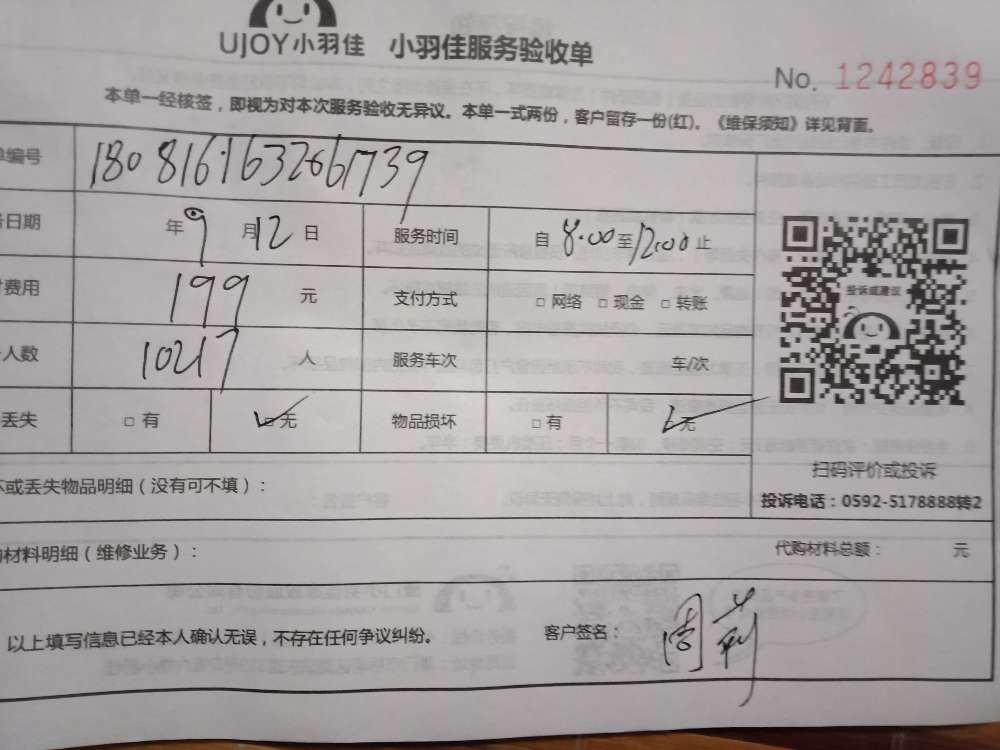 UJOY小羽佳 小羽佳服务验收单
No. 1242839
本单一经核签，即视为对本次服务验收无异议。本单一式两份，客户留存一份(红)。《维保须知》详见背面。
单编号 1808161632661739
务日期 年 9 月 12 日 服务时间 自 8:00 至 12:00 止
付费用 199 元 支付方式 □ 网络 □ 现金 □ 转账
人数 10217 人 服务车次 车/次
丢失 □ 有 □ 无 物品损坏 □ 有 无
投诉或建议
扫码评价或投诉
投诉电话：0592-5178888转2
坏或丢失物品明细（没有可不填）：
购材料明细（维修业务）： 代购材料总额： 元
以上填写信息已经本人确认无误，不存在任何争议纠纷。 客户签名： 周莉